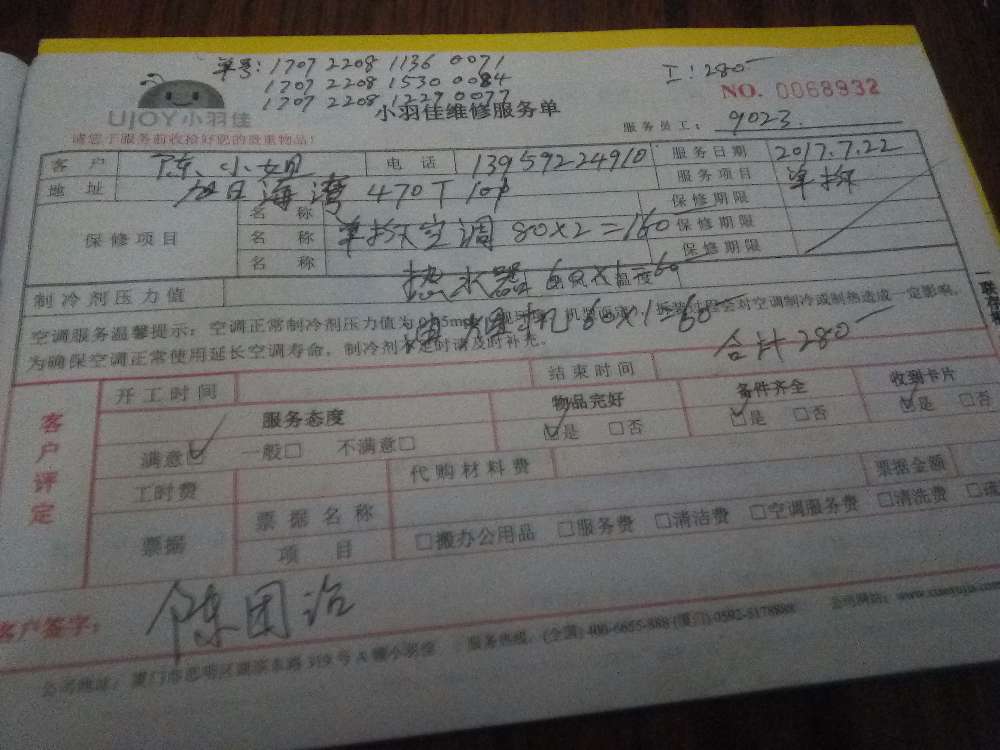 单号: 1707 2208 1136 0071
1707 2208 1530 0084
1707 2208 1229 0077
工: 280-
NO. 0068932
UJOY小羽佳
小羽佳维修服务单
请您于服务前收捡好您的贵重物品!
服务员工: 9023.
客户 陈小姐 电话 13959224910 服务日期 2017.7.22
地址 旭日海湾 470T 服务项目 单拆
保修项目 名称 保修期限
名称 单拆空调 80X2=160 保修期限
名称 保修期限
热水器 60
制冷剂压力值 温度
空调服务温馨提示: 空调正常制冷剂压力值为 会对空调制冷或制热造成一定影响,
为确保空调正常使用延长空调寿命, 制冷剂不足时请及时补充。
机 60X1=60
合计280一
客户评定
开工时间 结束时间
服务态度 物品完好 备件齐全 收到卡片
满意☑ 一般□ 不满意□ ☑是 □否 ☑是 □否 ☑是 □否
工时费 代购材料费 票据金额
票据 票据名称
项目 □搬办公用品 □服务费 □清洁费 □空调服务费 □清洗费
客户签字: 陈团治
公司地址: 厦门市思明区湖滨东路319号A幢小羽佳 服务热线: (全国) 400-6655-888 (厦门) 0592-5178888 公司网站: www.xiaoyujia.com